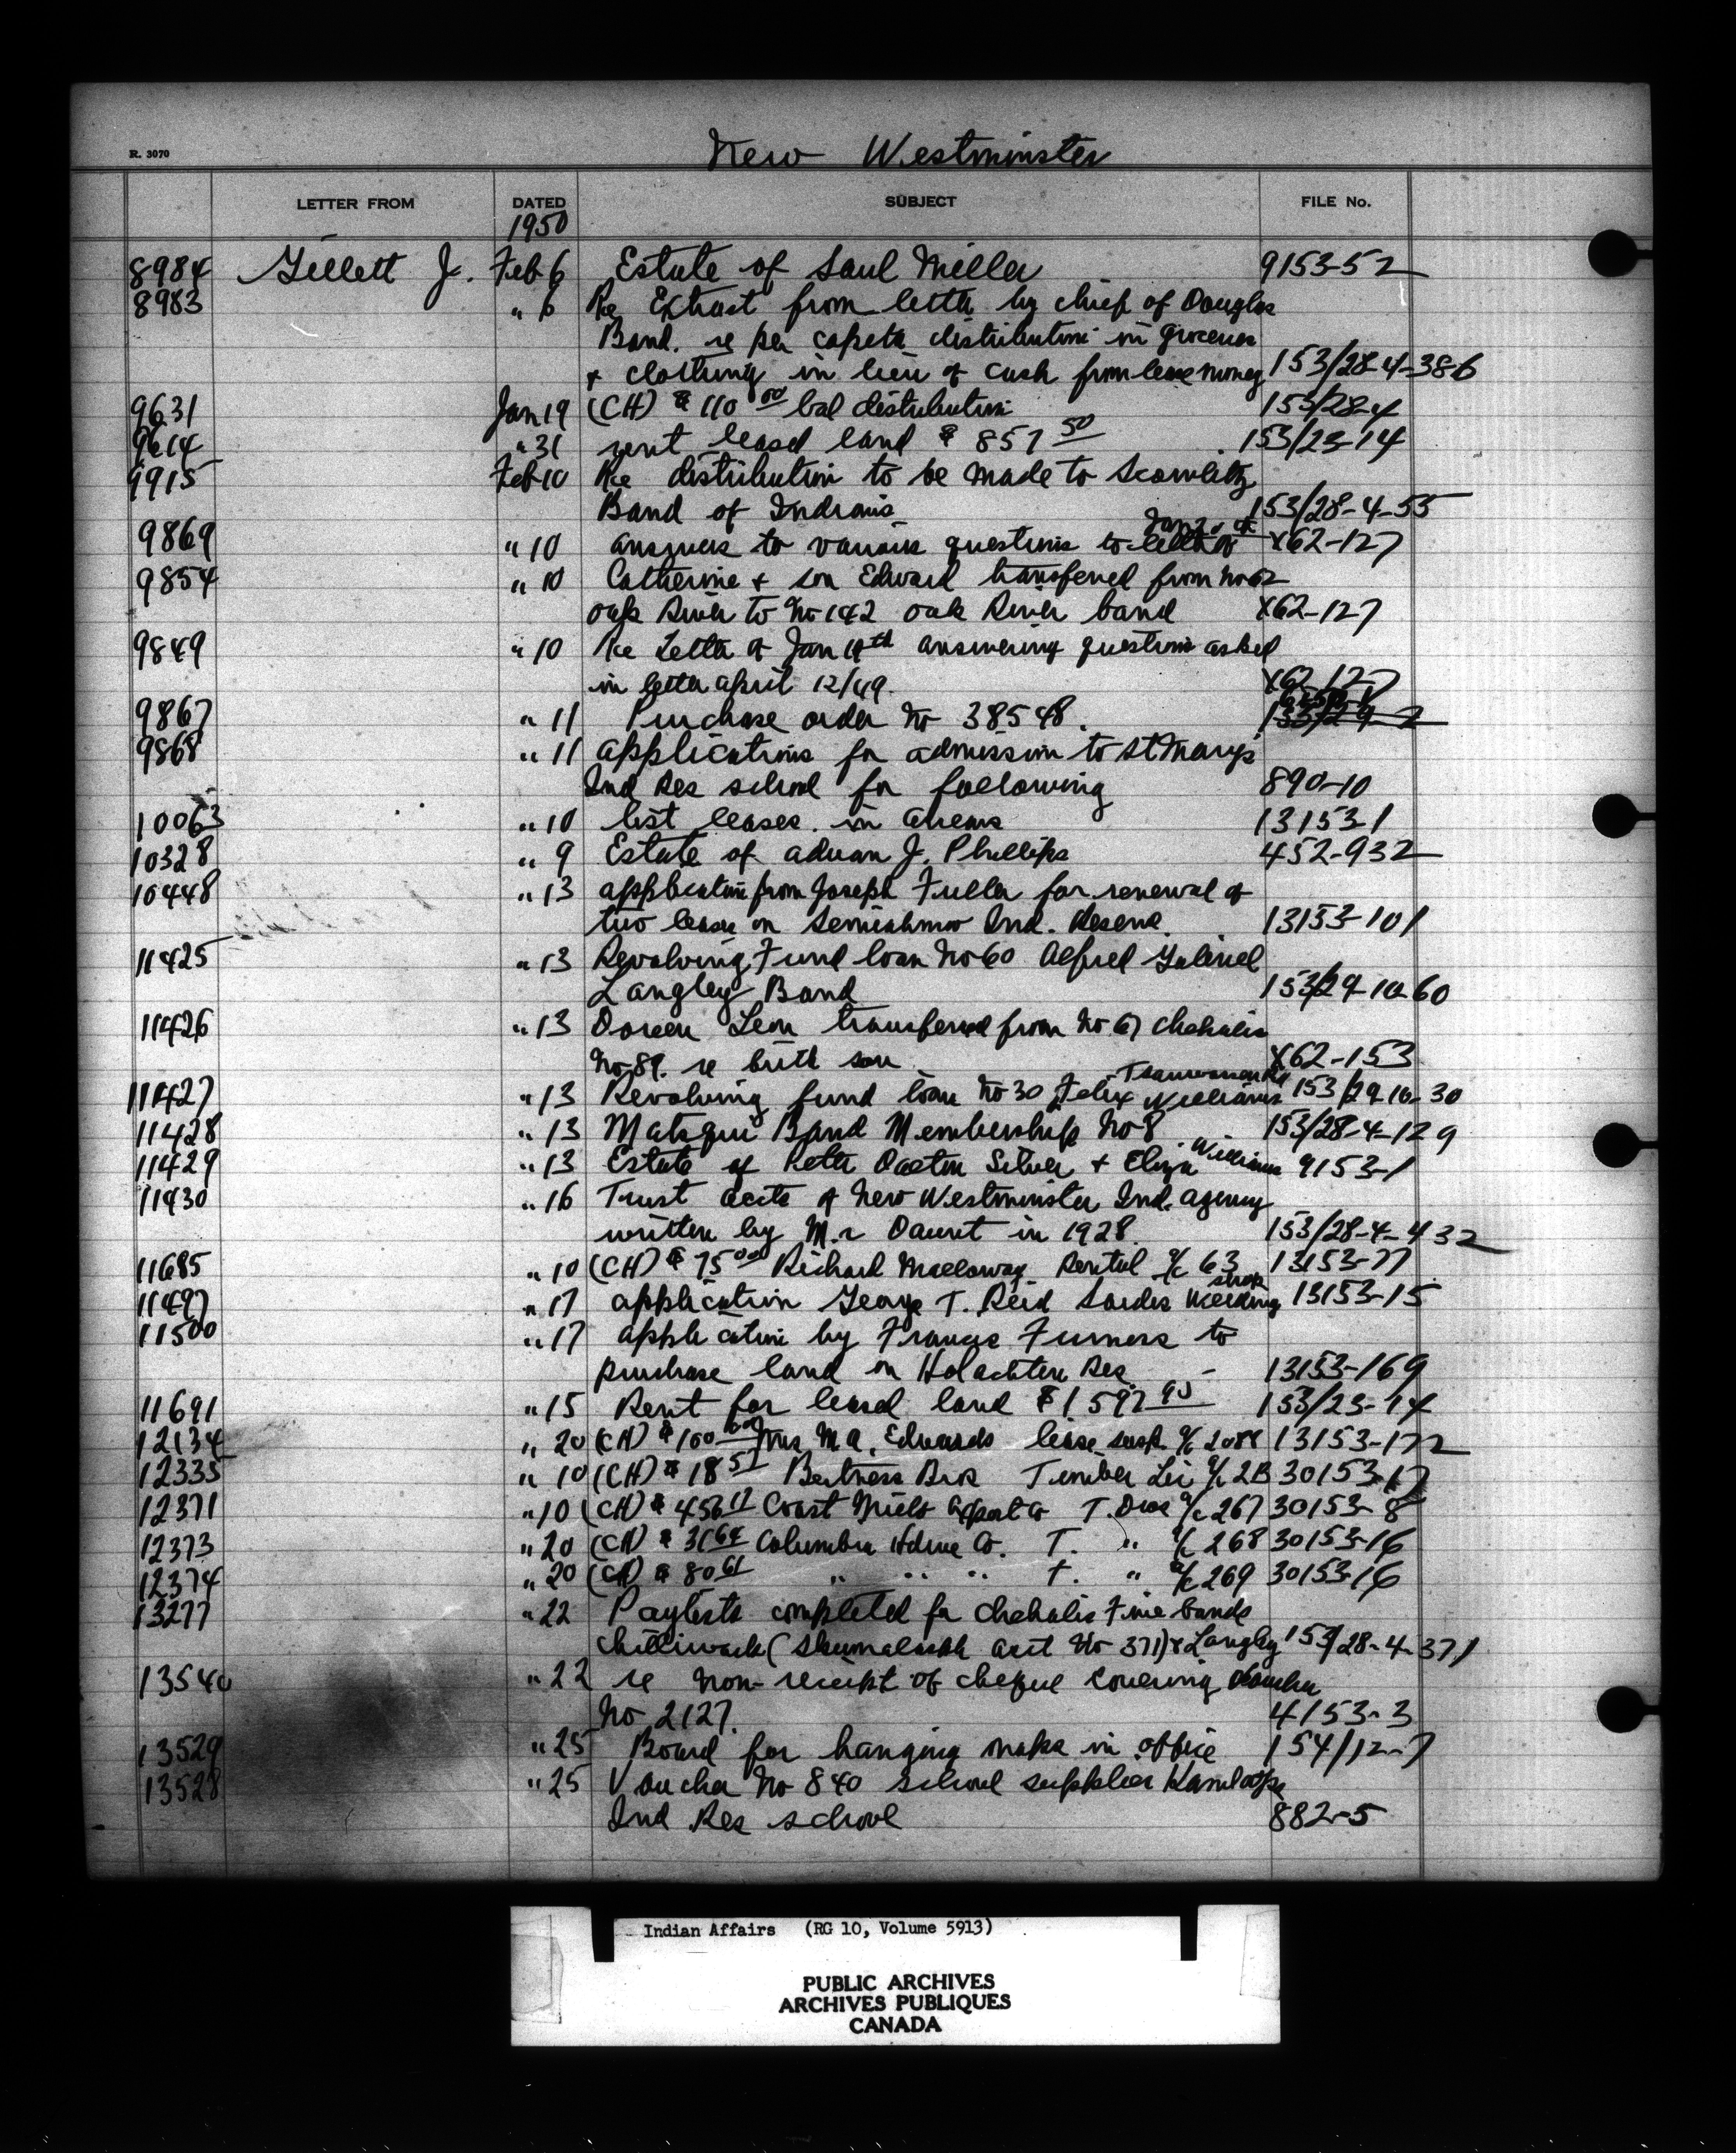 New Westminster
R. 3070
LETTER FROM DATED SUBJECT FILE No.
1950
8984 Gillett J. Feb 6 Estate of Saul Miller 9153-52
8983 " 6 Re Extract from letter by chief of Douglas
Band. re per capita distribution in groceries
& clothing in lieu of cash from lease money 153/28-4-386
9631 Jan 19 (CH) $ 110 00 bal distribution 153/28-4
9614 " 31 rent leased land $ 857 50 153/23-14
9915 Feb 10 Re distribution to be made to Scowlitz
Band of Indians 153/28-4-55
9869 " 10 answers to various questions to letter of Jan 20 X62-127
9854 " 10 Catherine & son Edward transferred from No 62
oak River to No 142 oak River band X62-127
9849 " 10 Re Letter of Jan 19th answering questions asked
in letter april 12/49. X62-127
9867 " 11 Purchase order No 38548. 153/29-2
9868 " 11 applications for admission to St Mary's
Ind Res school for following 890-10
10063 " 10 list leases in arrears 13153-1
10328 " 9 Estate of J. Phillips 452-932
10448 " 13 application from Joseph Fuller for renewal of
two leases on Semiahmoo Ind. Reserve. 13153-101
11425 " 13 Revolving Fund loan No 60 Alfred Gabriel
Langley Band 153/29-10-60
11426 " 13 Doreen Leon transferred from No 67 Chehalis
No 89. re birth son X62-153
11427 " 13 Revolving fund loan No 30 Felix Williams Tsawwassen 153/29-10-30
11428 " 13 Matsqui Band Membership No 8 153/28-4-129
11429 " 13 Estate of Peter Silver & Eliza Williams 9153-1
11430 " 16 Trust accts of New Westminster Ind. agency
written by Mr Daunt in 1928. 153/28-4-432
11685 " 10 (CH) $ 75 00 Richard Malloway Rental a/c 63 13153-77
11497 " 17 application George T. Reid Sardis Welding shop 13153-15
11500 " 17 application by Francis Furness to
purchase land on Holachten Res 13153-169
11691 " 15 Rent for leased land $ 1,597 95 153/23-14
12134 " 20 (CH) $ 100 00 Mrs M A. Edwards lease susp. a/c 2088 13153-172
12335 " 10 (CH) $ 18 51 Bros Timber Lic a/c 2B 30153-17
12371 " 10 (CH) $ 456 17 Coast Mills Export Co T. Dues a/c 267 30153-8
12373 " 20 (CH) $ 31 64 Columbia Co. T. " a/c 268 30153-16
12374 " 20 (CH) $ 80 61 " " " T. " a/c 269 30153-16
13277 " 22 Paylists completed for Chehalis Five bands
Chilliwack (Skumalasph acct No 371) & Langley 153/28-4-371
13540 " 22 re non-receipt of cheque covering Voucher
No 2127. 4153-3
13529 " 25 Board for hanging maps in office 154/12-7
13528 " 25 Voucher No 840 school supplies Kamloops
Ind Res school 882-5
Indian Affairs (RG 10, Volume 5913)
PUBLIC ARCHIVES
ARCHIVES PUBLIQUES
CANADA